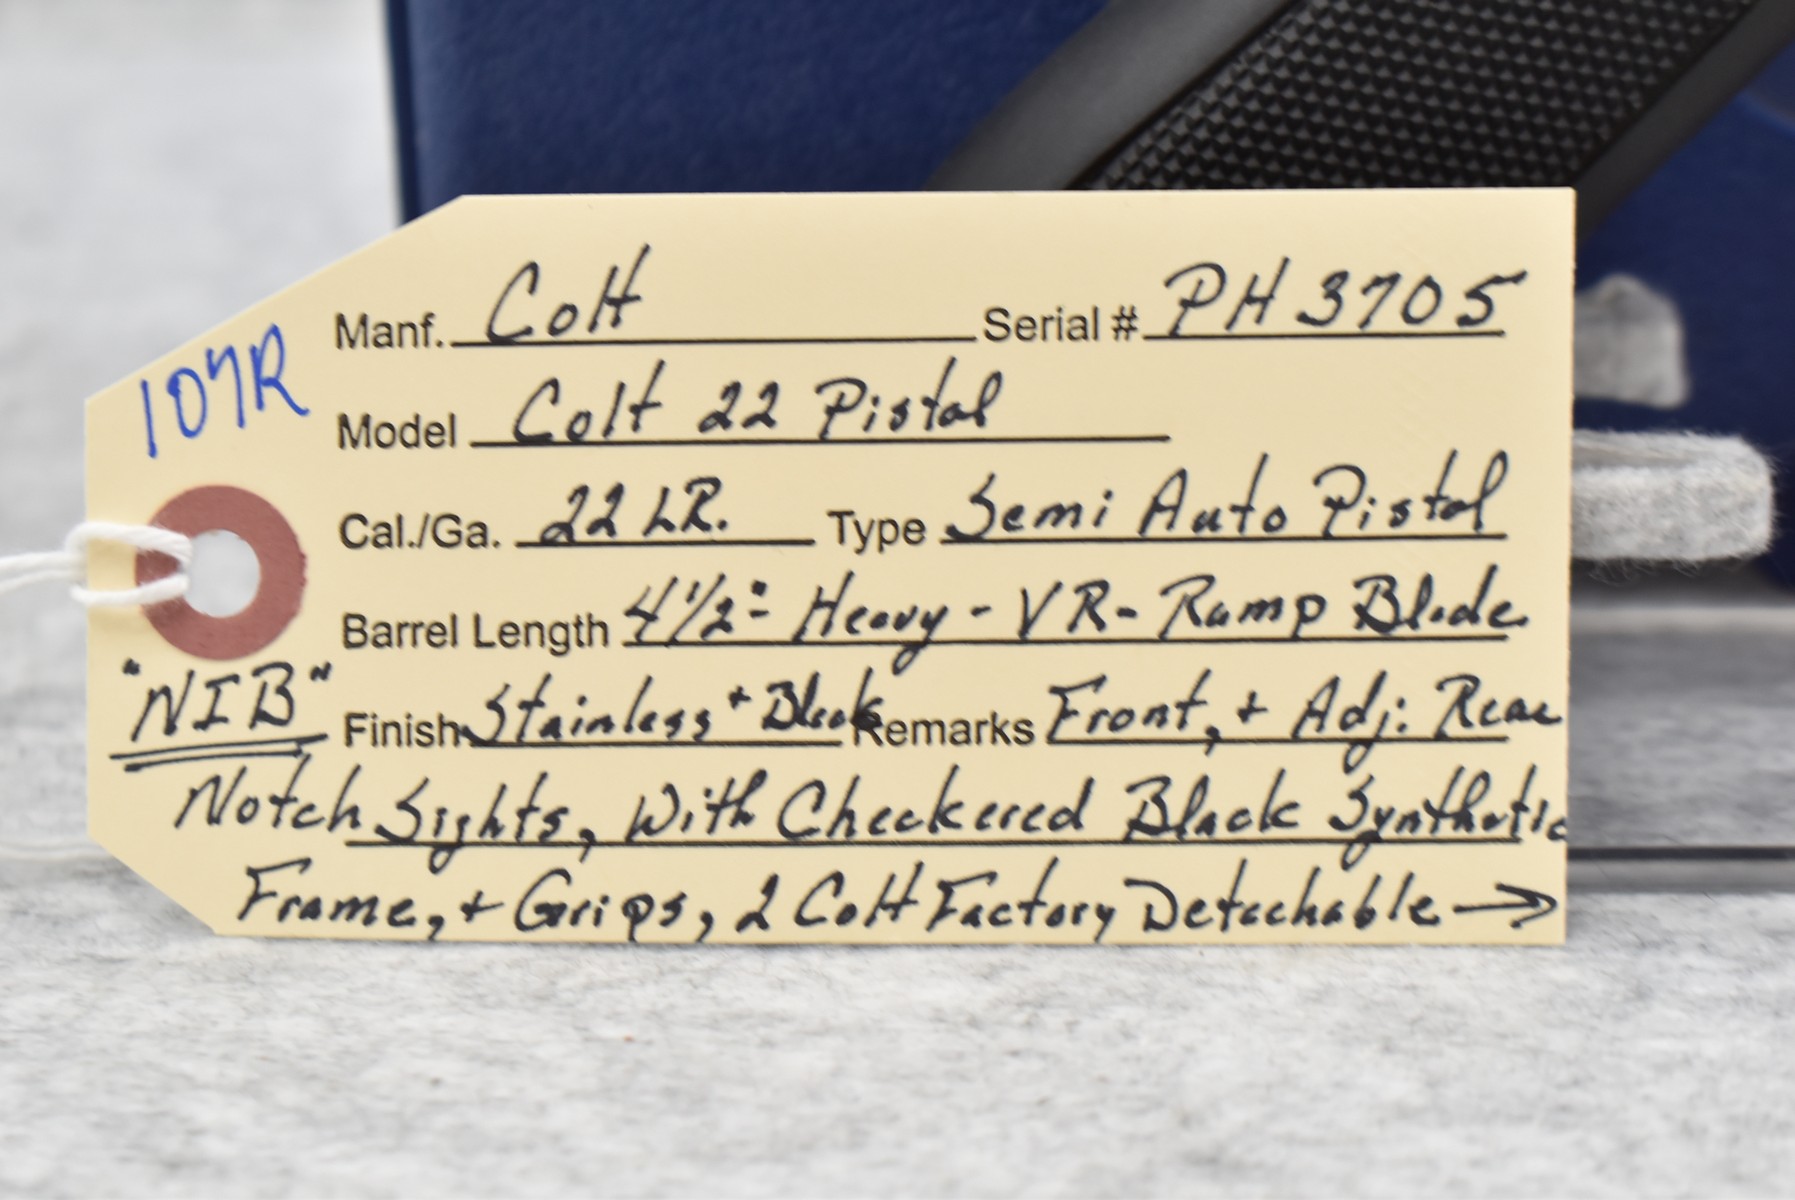 Manf. Colt Serial # PH3705
107R
Model Colt 22 Pistol
Cal./Ga. 22 LR. Type Semi Auto Pistol
Barrel Length 4 1/2" Heavy - VR - Ramp Blade
"NIB" Finish Stainless + Black Remarks Front, + Adj: Rear
Notch Sights, With Checkered Black Synthetic
Frame, + Grips, 2 Colt Factory Detachable →